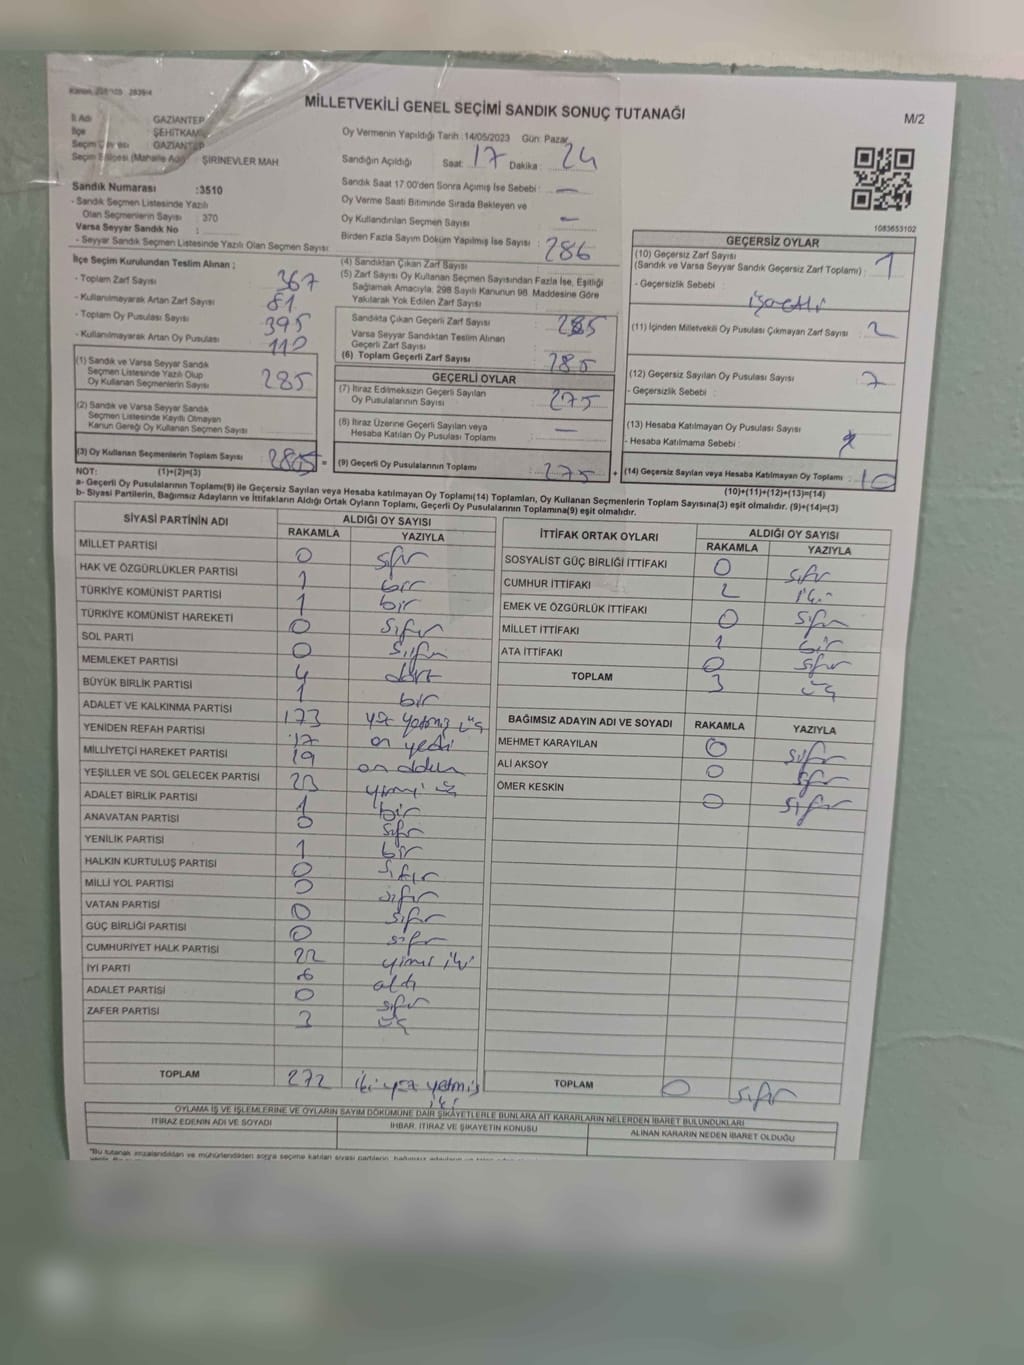 MİLLETVEKİLİ GENEL SEÇİMİ SANDIK SONUÇ TUTANAĞI
M/2
İl Adı GAZİANTEP
İlçe ŞEHİTKAM
Seçim Çevresi GAZİANTEP
Seçim Bölgesi (Mahalle Adı) ŞİRİNEVLER MAH
Oy Vermenin Yapıldığı Tarih :14/05/2023 Gün: Pazar
Sandığın Açıldığı Saat: 17 Dakika: 24
Sandık Saat 17.00'den Sonra Açımış İse Sebebi : —
Oy Verme Saati Bitiminde Sırada Bekleyen ve
Oy Kullandırılan Seçmen Sayısı —
Birden Fazla Sayım Döküm Yapılmış İse Sayısı :
Sandık Numarası :3510
- Sandık Seçmen Listesinde Yazılı
Olan Seçmenlerin Sayısı : 370
Varsa Seyyar Sandık No :
- Seyyar Sandık Seçmen Listesinde Yazılı Olan Seçmen Sayısı
1083653102
İlçe Seçim Kurulundan Teslim Alınan ;
- Toplam Zarf Sayısı 367
- Kullanılmayarak Artan Zarf Sayısı 81
- Toplam Oy Pusulası Sayısı 395
- Kullanılmayarak Artan Oy Pusulası 110
(1) Sandık ve Varsa Seyyar Sandık
Seçmen Listesinde Yazılı Olup
Oy Kullanan Seçmenlerin Sayısı 285
(2) Sandık ve Varsa Seyyar Sandık
Seçmen Listesinde Kayıtlı Olmayan
Kanun Gereği Oy Kullanan Seçmen Sayısı
(3) Oy Kullanan Seçmenlerin Toplam Sayısı 285 =
(4) Sandıktan Çıkan Zarf Sayısı 286
(5) Zarf Sayısı Oy Kullanan Seçmen Sayısından Fazla İse, Eşitliği
Sağlamak Amacıyla, 298 Sayılı Kanunun 98. Maddesine Göre
Yakılarak Yok Edilen Zarf Sayısı
Sandıkta Çıkan Geçerli Zarf Sayısı 285
Varsa Seyyar Sandıktan Teslim Alınan
Geçerli Zarf Sayısı
(6) Toplam Geçerli Zarf Sayısı 285
GEÇERLİ OYLAR
(7) İtiraz Edilmeksizin Geçerli Sayılan
Oy Pusulalarının Sayısı 275
(8) İtiraz Üzerine Geçerli Sayılan veya
Hesaba Katılan Oy Pusulası Toplamı —
(9) Geçerli Oy Pusulalarının Toplamı 275 +
GEÇERSİZ OYLAR
(10) Geçersiz Zarf Sayısı
(Sandık ve Varsa Seyyar Sandık Geçersiz Zarf Toplamı) : 1
- Geçersizlik Sebebi : işaretli
(11) İçinden Milletvekili Oy Pusulası Çıkmayan Zarf Sayısı 2
(12) Geçersiz Sayılan Oy Pusulası Sayısı 7
- Geçersizlik Sebebi :
(13) Hesaba Katılmayan Oy Pusulası Sayısı
- Hesaba Katılmama Sebebi :
(14) Geçersiz Sayılan veya Hesaba Katılmayan Oy Toplamı 10
NOT: (1)+(2)=(3)
(10)+(11)+(12)+(13)=(14)
a- Geçerli Oy Pusulalarının Toplamı(9) ile Geçersiz Sayılan veya Hesaba katılmayan Oy Toplamı(14) Toplamları, Oy Kullanan Seçmenlerin Toplam Sayısına(3) eşit olmalıdır. (9)+(14)=(3)
b- Siyasi Partilerin, Bağımsız Adayların ve İttifakların Aldığı Ortak Oyların Toplamı, Geçerli Oy Pusulalarının Toplamına(9) eşit olmalıdır.
SİYASİ PARTİNİN ADI ALDIĞI OY SAYISI
RAKAMLA YAZIYLA
MİLLET PARTİSİ 0 sıfır
HAK VE ÖZGÜRLÜKLER PARTİSİ 1 bir
TÜRKİYE KOMÜNİST PARTİSİ 1 bir
TÜRKİYE KOMÜNİST HAREKETİ 0 sıfır
SOL PARTİ 0 sıfır
MEMLEKET PARTİSİ 4 dört
BÜYÜK BİRLİK PARTİSİ 1 bir
ADALET VE KALKINMA PARTİSİ 173 yüz yetmiş üç
YENİDEN REFAH PARTİSİ 17 on yedi
MİLLİYETÇİ HAREKET PARTİSİ 19 on dokuz
YEŞİLLER VE SOL GELECEK PARTİSİ 23 yirmi üç
ADALET BİRLİK PARTİSİ 1 bir
ANAVATAN PARTİSİ 0 sıfır
YENİLİK PARTİSİ 1 bir
HALKIN KURTULUŞ PARTİSİ 0 sıfır
MİLLİ YOL PARTİSİ 0 sıfır
VATAN PARTİSİ 0 sıfır
GÜÇ BİRLİĞİ PARTİSİ 0 sıfır
CUMHURİYET HALK PARTİSİ 22 yirmi iki
İYİ PARTİ 6 altı
ADALET PARTİSİ 0 sıfır
ZAFER PARTİSİ 3 üç
TOPLAM 272 iki yüz yetmiş iki
İTTİFAK ORTAK OYLARI ALDIĞI OY SAYISI
RAKAMLA YAZIYLA
SOSYALİST GÜÇ BİRLİĞİ İTTİFAKI 0 sıfır
CUMHUR İTTİFAKI 2 iki
EMEK VE ÖZGÜRLÜK İTTİFAKI 0 sıfır
MİLLET İTTİFAKI 1 bir
ATA İTTİFAKI 0 sıfır
TOPLAM 3 üç
BAĞIMSIZ ADAYIN ADI VE SOYADI RAKAMLA YAZIYLA
MEHMET KARAYILAN 0 sıfır
ALİ AKSOY 0 sıfır
ÖMER KESKİN 0 sıfır
TOPLAM 0 sıfır
OYLAMA İŞ VE İŞLEMLERİNE VE OYLARIN SAYIM DÖKÜMÜNE DAİR ŞİKAYETLERLE BUNLARA AİT KARARLARIN NELERDEN İBARET BULUNDUKLARI
İTİRAZ EDENİN ADI VE SOYADI İHBAR, İTİRAZ VE ŞİKAYETİN KONUSU ALINAN KARARIN NEDEN İBARET OLDUĞU